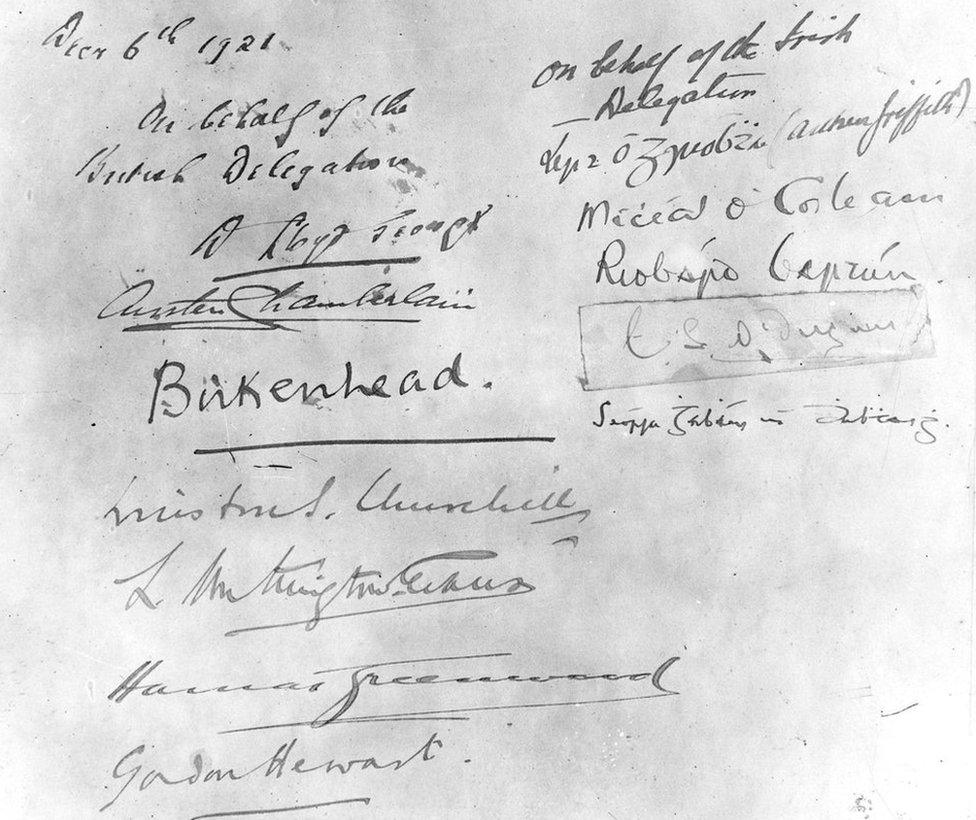 Decr 6th 1921
On behalf of the
British Delegation
D Lloyd George
Austen Chamberlain
Birkenhead.
Winston S. Churchill
L Worthington-Evans
Hamar Greenwood
Gordon Hewart.
On behalf of the Irish
Delegation
Art Ó Gríobhtha (Arthur Griffith)
Mícéal Ó Coileáin
Riobárd Bartún
E S Ó Dugáin
Seórsa Ghabháin Uí Dhubhthaigh